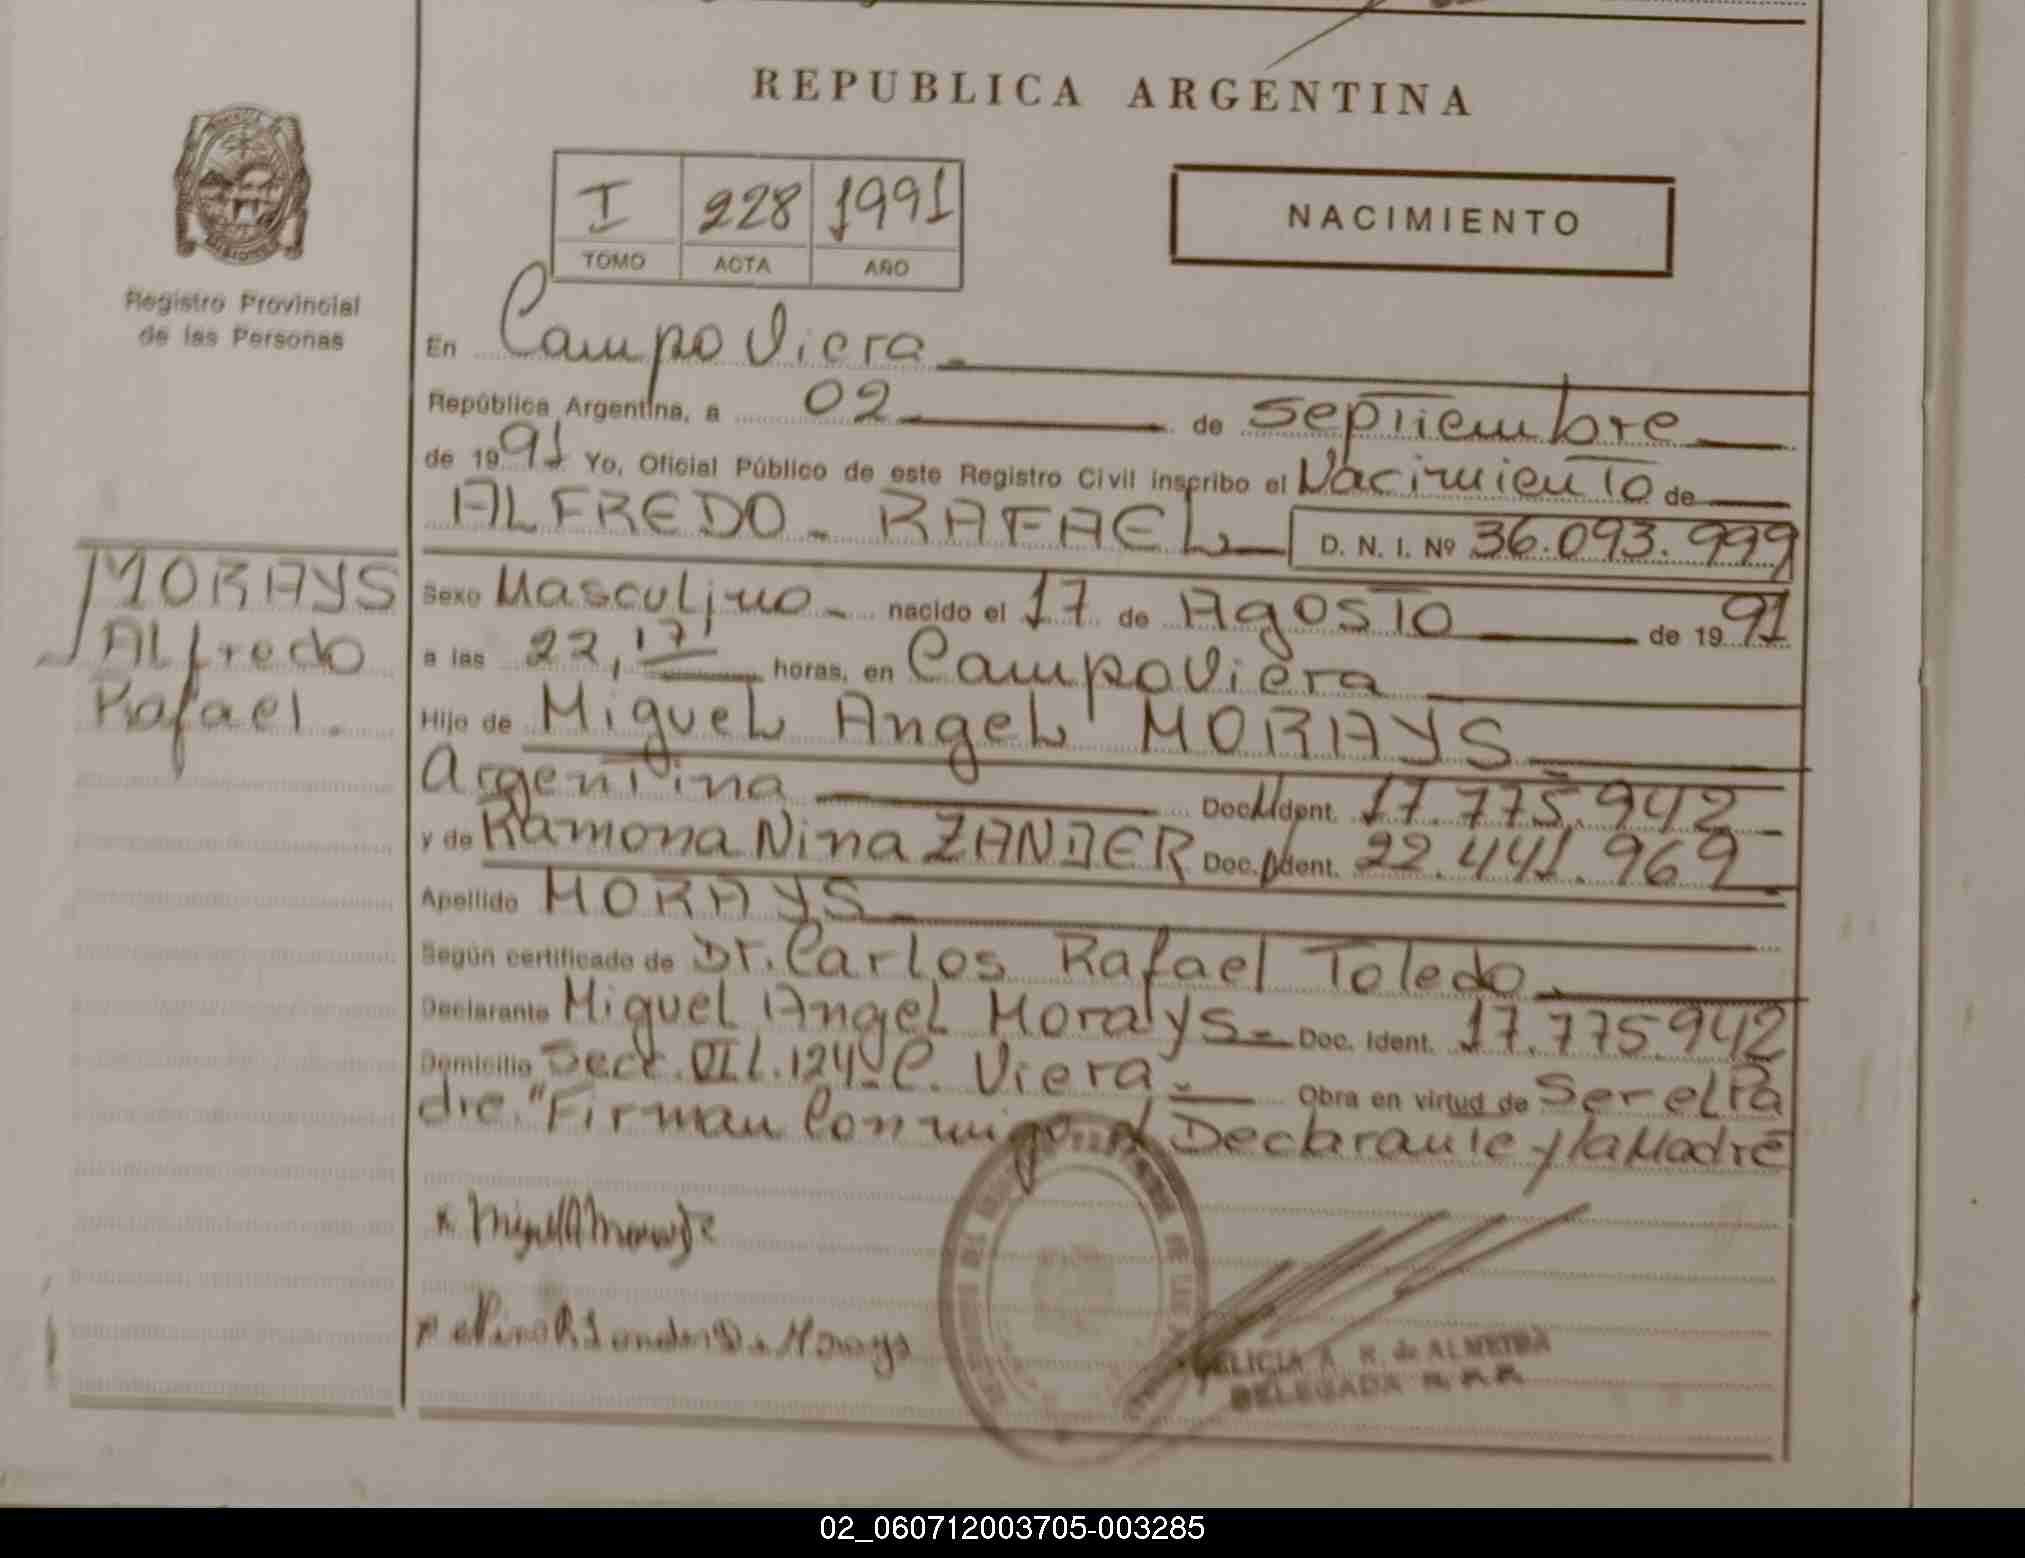 REPUBLICA ARGENTINA
I 228 1991
TOMO ACTA AÑO
NACIMIENTO
Registro Provincial
de las Personas
En Campo Viera
República Argentina, a 02 de Septiembre
de 1991 Yo, Oficial Público de este Registro Civil inscribo el Nacimiento de
ALFREDO - RAFAEL D. N. I. Nº 36.093.999
MORAYS
Alfredo
Rafael.
Sexo Masculino - nacido el 17 de Agosto de 1991
a las 22,17 horas, en Campo Viera
Hijo de Miguel Angel MORAYS
Argentina Doc. Ident. 17.775.942
y de Ramona Nina ZANDER Doc. Ident. 22.441.969
Apellido MORAYS
Según certificado de Dr. Carlos Rafael Toledo
Declarante Miguel Angel Morays - Doc. Ident. 17.775.942
Domicilio Secc. VII L. 124 - C. Viera Obra en virtud de Ser el Pa
dre. "Firman Conmigo el Declarante y la Madre
R. de ALMEIDA
DELEGADA
02_060712003705-003285